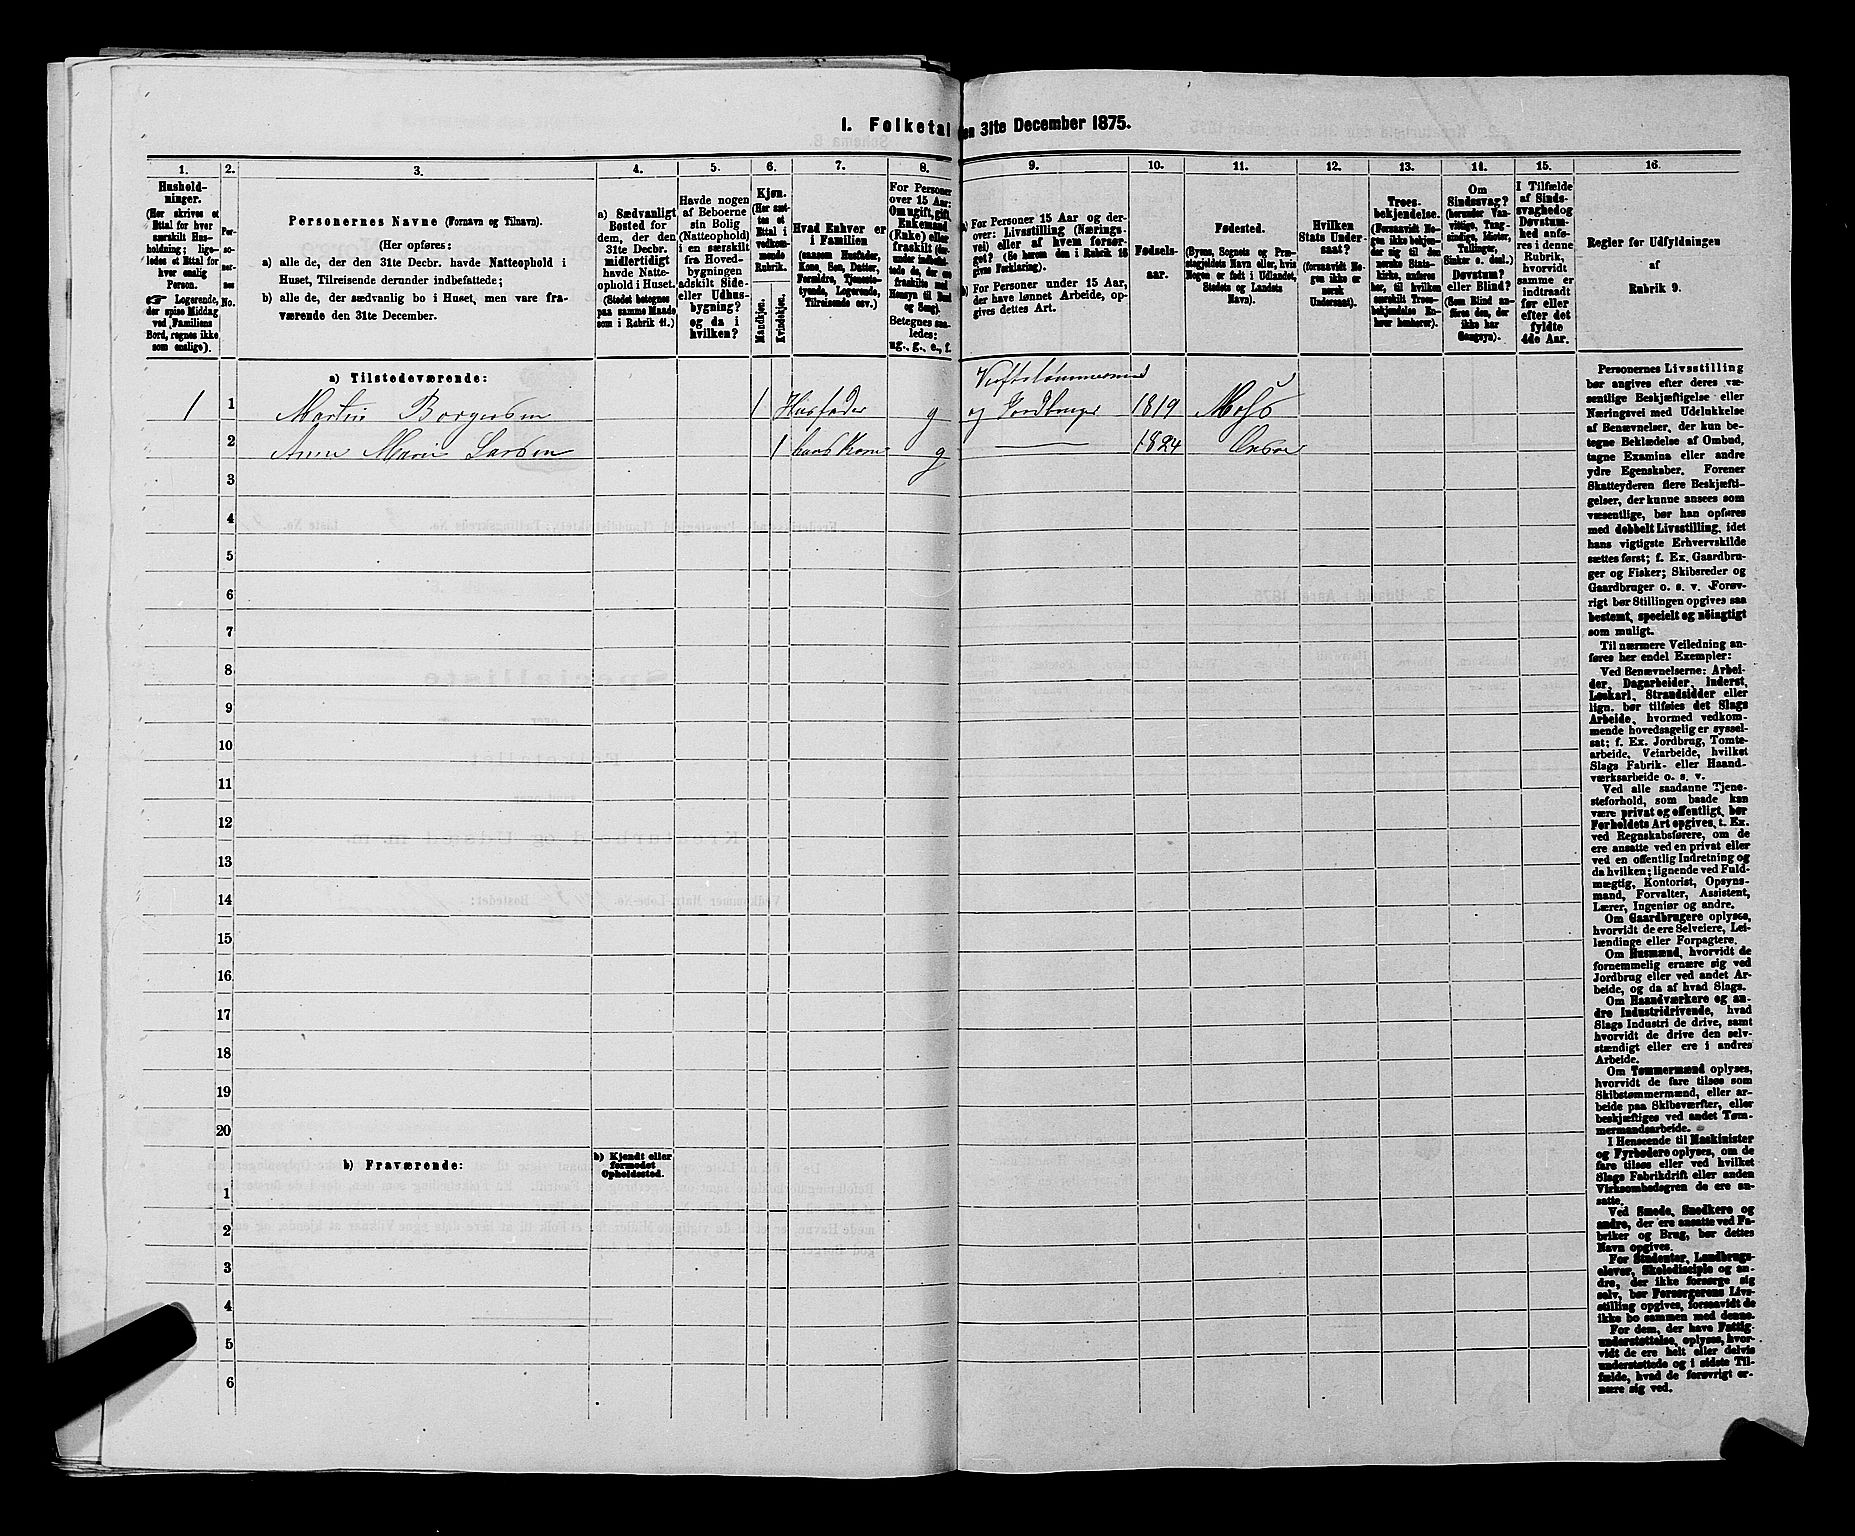 I. Folketal den 31te December 1875.
1.
Hushold-
ninger.
(Her skrives et
Ettal for hver
særskilt Hus-
holdning; lige-
ledes et Ettal for
hver enslig
Person.
Logerende,
der spise Middag
ved Familiens
Bord, regnes ikke
som enslige).
2.
Per-
so-
ner-
nes
No.
3.
Personernes Navne (Fornavn og Tilnavn).
(Her opføres:
a) alle de, der den 31te Decbr. havde Natteophold i
Huset, Tilreisende derunder indbefattede;
b) alle de, der sædvanlig bo i Huset, men vare fra-
værende den 31te December.
4.
a) Sædvanligt
Bosted for
dem, der den
31te Decbr.
midlertidigt
havde Natte-
ophold i Huset.
(Stedet betegnes
paa samme Maade
som i Rubrik 11.)
5.
Havde nogen
af Beboerne
sin Bolig
(Natteophold)
i en særskilt
fra Hoved-
bygningen
adskilt Side-
eller Udhus-
bygning?
og da i
hvilken?
6.
Kjøn.
(Her sæt-
tes et
Ettal i
vedkom-
mende
Rubrik.
Mandkjøn.
Kvindekjøn.
7.
Hvad Enhver er
i Familien
(saasom Husfader,
Kone, Søn, Datter,
Forældre, Tjeneste-
tyende, Logerende,
Tilreisende osv.)
8.
For Personer
over 15 Aar:
Om ugift, gift,
Enkemand
(Enke) eller
fraskilt (der-
under indbefat-
tede de, der ere
fraskilte med
Hensyn til Bord
og Seng).
Betegnes saa-
ledes:
ug., g., e., f.
9.
a) For Personer 15 Aar og der-
over: Livsstilling (Nærings-
vei) eller af hvem forsør-
get? (Se herom den i Rubrik 16
givne Forklaring).
b) For Personer under 15 Aar,
der have lønnet Arbeide, op-
gives dettes Art.
10.
Fødsels-
aar.
11.
Fødested.
(Byens, Sognets og Præ-
stegjeldets Navn eller, hvis
Nogen er født i Udlandet,
Stedets og Landets
Navn).
12.
Hvilken
Stats Under-
saat?
(forsaavidt No-
gen ikke er
norsk
Undersaat).
13.
Troes-
bekjendelse.
(Forsaavidt No-
gen ikke bekjen-
der sig til den
norske Stats-
kirke, anføres
her, til hvilken
særskilt Troes-
bekjendelse En-
hver henhører).
14.
Om
Sindssvag?
(herunder Van-
vittige, Tung-
sindige, Idioter,
Tullinger,
Sinker o. desl.)
Døvstum?
eller Blind?
(Som Blind an-
føres den, der
ikke har
Gangsyn).
15.
I Tilfælde
af Sinds-
svaghed og
Døvstum-
hed anfø-
res i denne
Rubrik,
hvorvidt
samme er
indtraadt
før eller
efter det
fyldte
4de Aar.
16.
Regler for Udfyldningen
af
Rubrik 9.
a) Tilstedeværende:
Værftstømmermand
1 1 Martin Borgersen 1 Husfader g og Jordbruger 1819 Moss
2 Anne Marie Larsen 1 hans Kone g 1824 Onsoe
3
4
5
6
7
8
9
10
11
12
13
14
15
16
17
18
19
20
b) Fraværende:
b) Kjendt eller
formodet
Opholdssted.
1
2
3
4
5
6
Personernes Livsstilling
bør angives efter deres væ-
sentlige Beskjæftigelse eller
Næringsvei med Udelukkelse
af Benævnelser, der kun be-
tegne Beklædelse af Ombud,
tagne Examina eller andre
ydre Egenskaber. Forener
Skatteyderen flere Beskjæfti-
gelser, der kunne ansees som
væsentlige, bør han opføres
med dobbelt Livsstilling, idet
hans vigtigste Erhvervskilde
sættes først; f. Ex. Gaardbru-
ger og Fisker; Skibsreder og
Gaardbruger o. s. v. Forøv-
rigt bør Stillingen opgives saa
bestemt, specielt og nøiagtigt
som muligt.
Til nærmere Veiledning an-
føres her endel Exempler:
Ved Benævnelserne: Arbei-
der, Dagarbeider, Inderst,
Løskarl, Strandsidder eller
lign. bør tilføies det Slags
Arbeide, hvormed vedkom-
mende hovedsagelig er syssel-
sat; f. Ex. Jordbrug, Tomte-
arbeide, Veiarbeide, hvilket
Slags Fabrik- eller Haand-
værksarbeide o. s. v.
Ved alle saadanne Tjene-
steforhold, som baade kan
være privat og offentligt, bør
Forholdets Art opgives, t. Ex.
ved Regnskabsførere, om de
ere ansatte ved en privat eller
ved en offentlig Indretning og
da hvilken; lignende ved Fuld-
mægtig, Kontorist, Opsyns-
mand, Forvalter, Assistent,
Lærer, Ingeniør og andre.
Om Gaardbrugere oplyses,
hvorvidt de ere Selveiere, Lei-
lændinge eller Forpagtere.
Om Husmænd, hvorvidt de
fornemmelig ernære sig ved
Jordbrug eller ved andet Ar-
beide, og da af hvad Slags.
Om Haandværkere og an-
dre Industridrivende, hvad
Slags Industri de drive, samt
hvorvidt de drive den selv-
stændigt eller ere i andres
Arbeide.
Om Tømmermænd oplyses,
hvorvidt de fare tilsøs som
Skibstømmermænd, eller ar-
beide paa Skibsværfter, eller
beskjæftiges ved andet Tøm-
mermandsarbeide.
I Henseende til Maskinister
og Fyrbødere oplyses, om de
fare tilsøs eller ved hvilket
Slags Fabrikdrift eller anden
Virksomhedsgren de ere an-
satte.
Ved Smede, Snedkere og
andre, der ere ansatte ved Fa-
briker og Brug, bør dettes
Navn opgives.
For Studenter, Landbrugs-
elever, Skoledisciple og an-
dre, der ikke forsørge sig
selv, bør Forsørgerens Livs-
stilling opgives, forsaavidt de
ikke bo sammen med denne.
For dem, der have Fattig-
understøttelse, oplyses, hvor-
vidt de ere helt eller delvis
understøttede og i sidste Til-
fælde, hvad de forøvrigt er-
nære sig ved.